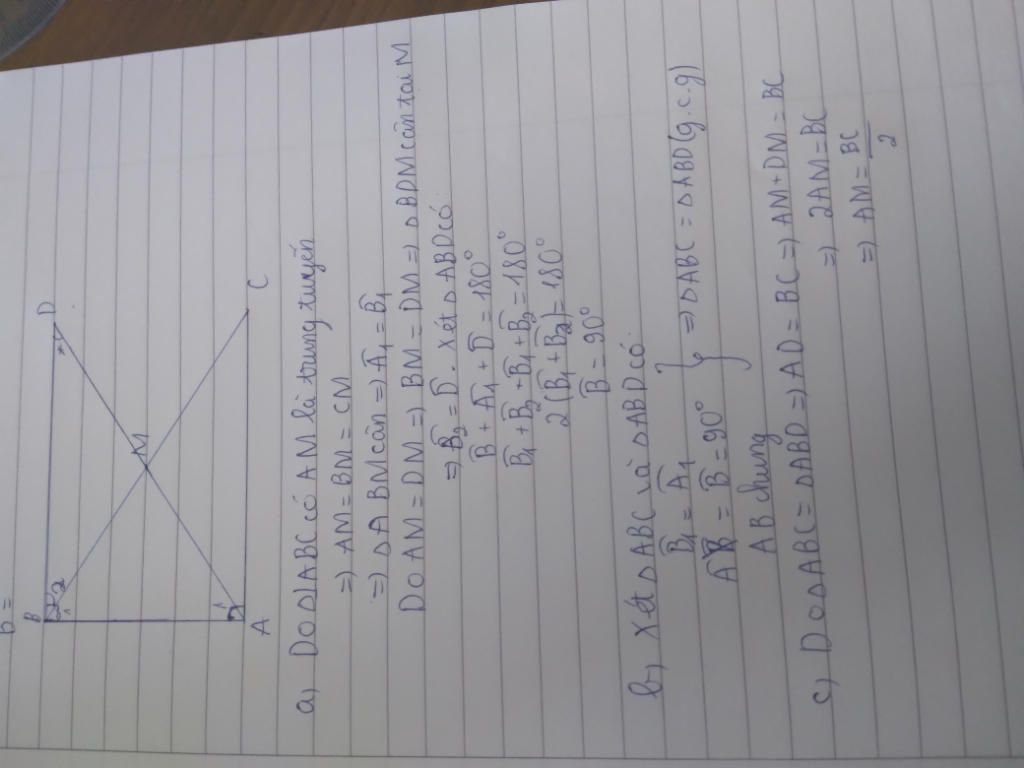 b =
B
D
1
2
M
1
A
C
a) Do △ABC có AM là trung tuyến
=) AM = BM = CM
=) △ABM cân =) Â1 = B̂1
Do AM = DM =) BM = DM =) △BDM cân tại M
=) B̂2 = D̂. Xét △ABD có
B̂ + Â1 + D̂ = 180°
B̂1 + B̂2 + B̂1 + B̂2 = 180°
2(B̂1 + B̂2) = 180°
B̂ = 90°
b) Xét △ABC và △ABD có
B̂1 = Â1
Â = B̂ = 90° } =) △ABC = △ABD (g.c.g)
AB chung
c) Do △ABC = △ABD =) AD = BC =) AM + DM = BC
=) 2AM = BC
=) AM = BC/2